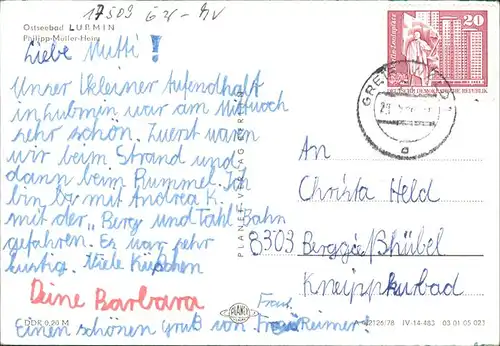 17509 
Ostseebad LUBMIN
Philipp-Müller-Heim
Liebe Mutti!
Unser kleiner Aufendhalt
in Lubmin war am Mittwoch
sehr schön. Zuerst waren
wir beim Strand und
dann beim Rummel. Ich
bin bx mit Andrea K.
mit der "Berg und Tahl-Bahn
gefahren. Es war sehr
lustig. Viele Küßchen
Deine Barbara
Einen schönen Gruß von Frau Reimer!
Frau
DDR 0,20 M
PLANET-VERLAG BERLIN
PLANET
20
DEUTSCHE DEMOKRATISCHE REPUBLIK
An
Christa Held
8303 Berggießhübel
Kneippkurbad
IV-14-483 03 01 05 021